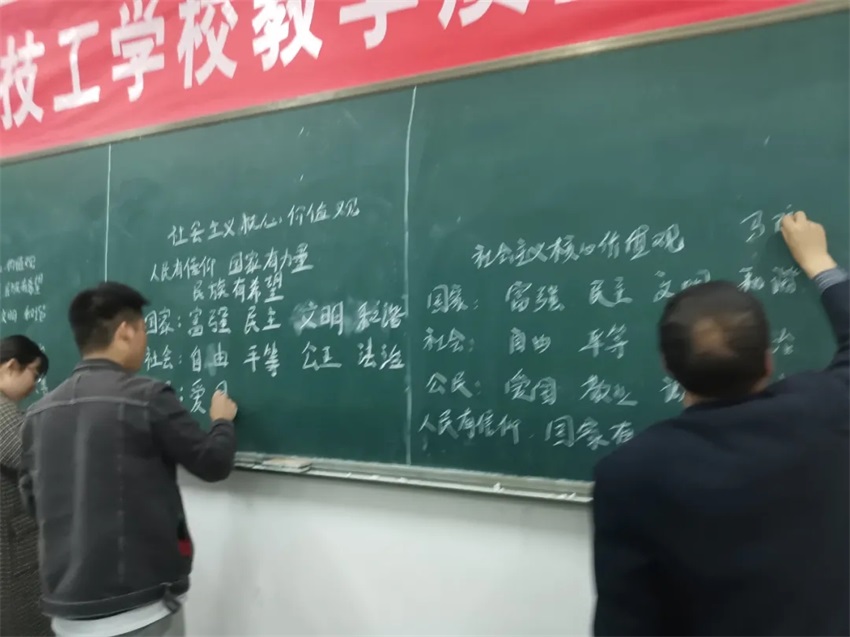 技工学校教学质
价值观
社会主义核心价值观
人民有信仰 国家有力量
民族有希望
国家：富强 民主 文明 和谐
社会：自由 平等 公正 法治
：爱
社会主义核心价值观
国家：富强 民主 文明 和谐
社会：自由 平等 治
公民：爱国 敬业
人民有信仰 国家有